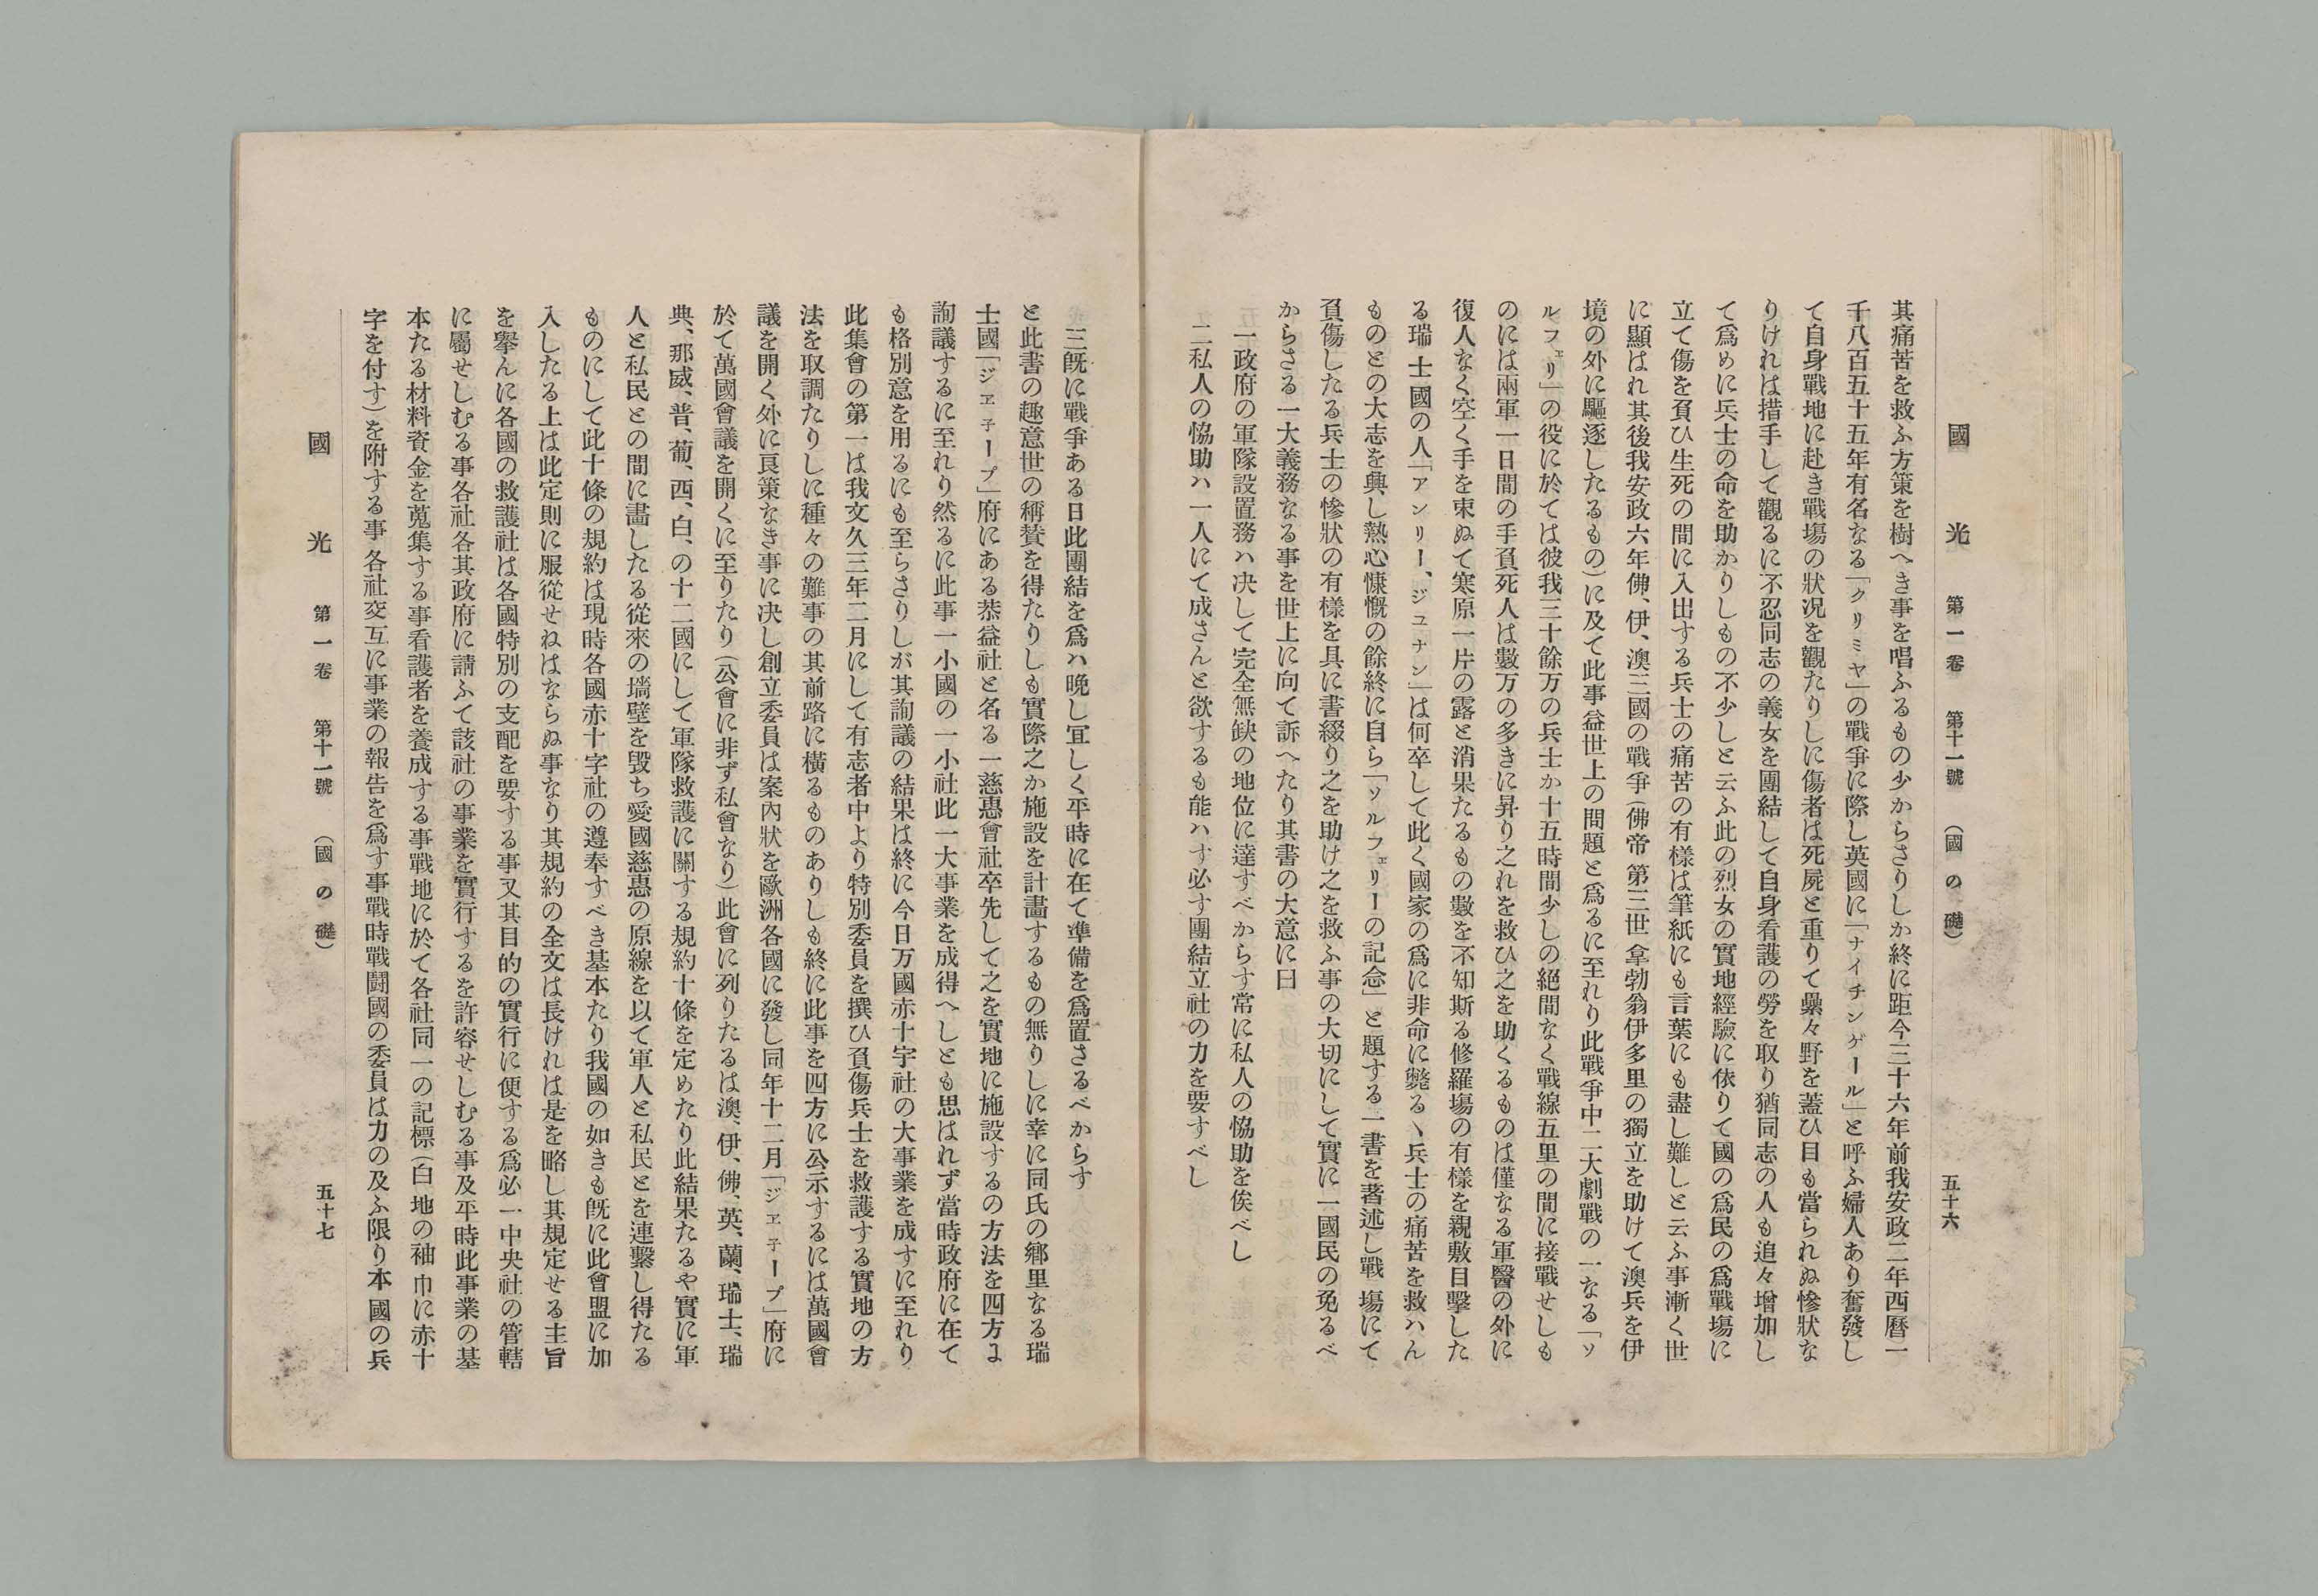 國光 第一卷 第十一號 (國の礎) 五十六
其痛苦を救ふ方策を樹へき事を唱ふるもの少からさりしか終に距今三十六年前我安政二年西曆一
千八百五十五年有名なる「クリミヤ」の戰爭に際し英國に「ナイチンゲール」と呼ふ婦人あり奮發し
て自身戰地に赴き戰塲の狀況を觀たりしに傷者は死屍と重りて纍々野を蓋ひ目も當られぬ慘狀な
りけれは措手して觀るに不忍同志の義女を團結して自身看護の勞を取り猶同志の人も追々增加し
て爲めに兵士の命を助かりしもの不少しと云ふ此の烈女の實地經驗に依りて國の爲民の爲戰塲に
立て傷を負ひ生死の間に入出する兵士の痛苦の有樣は筆紙にも言葉にも盡し難しと云ふ事漸く世
に顯はれ其後我安政六年佛、伊、澳三國の戰爭(佛帝第三世拿勃翁伊多里の獨立を助けて澳兵を伊
境の外に驅逐したるもの)に及て此事益世上の問題と爲るに至れり此戰爭中二大劇戰の一なる「ソ
ルフェリ」の役に於ては彼我三十餘万の兵士か十五時間少しの絕間なく戰線五里の間に接戰せしも
のには兩軍一日間の手負死人は數万の多きに昇り之れを救ひ之を助くるものは僅なる軍醫の外に
復人なく空く手を束ぬて寒原一片の露と消果たるもの數を不知斯る修羅塲の有樣を親敷目擊した
る瑞士國の人「アンリー、ジユナン」は何卒して此く國家の爲に非命に斃るヽ兵士の痛苦を救ハん
ものとの大志を興し熱心慷慨の餘終に自ら「ソルフェリーの記念」と題する一書を著述し戰塲にて
負傷したる兵士の慘狀の有樣を具に書綴り之を助け之を救ふ事の大切にして實に一國民の免るべ
からさる一大義務なる事を世上に向て訴へたり其書の大意に曰
一政府の軍隊設置務ハ决して完全無缺の地位に達すべからす常に私人の恊助を俟べし
二私人の恊助ハ一人にて成さんと欲するも能ハす必す團結立社の力を要すべし
三旣に戰爭ある日此團結を爲ハ晩し宜しく平時に在て準備を爲置さるべからす
と此書の趣意世の稱賛を得たりしも實際之か施設を計畫するもの無りしに幸に同氏の鄕里なる瑞
士國「ジエ子ープ」府にある恭益社と名る一慈惠會社卒先して之を實地に施設するの方法を四方よ
詢議するに至れり然るに此事一小國の一小社此一大事業を成得へしとも思はれず當時政府に在て
も格別意を用るにも至らさりしが其詢議の結果は終に今日万國赤十字社の大事業を成すに至れり
此集會の第一は我文久三年二月にして有志者中より特別委員を撰ひ負傷兵士を救護する實地の方
法を取調たりしに種々の難事の其前路に橫るものありしも終に此事を四方に公示するには萬國會
議を開く外に良策なき事に決し創立委員は案內狀を歐洲各國に發し同年十二月「ジエ子ープ」府に
於て萬國會議を開くに至りたり(公會に非ず私會なり)此會に列りたるは澳、伊、佛、英、蘭、瑞士、瑞
典、那威、普、葡、西、白、の十二國にして軍隊救護に關する規約十條を定めたり此結果たるや實に軍
人と私民との間に畵したる從來の墻壁を毀ち愛國慈惠の原線を以て軍人と私民とを連繫し得たる
ものにして此十條の規約は現時各國赤十字社の遵奉すべき基本たり我國の如きも旣に此會盟に加
入したる上は此定則に服從せねはならぬ事なり其規約の全文は長けれは是を略し其規定せる主旨
を擧んに各國の救護社は各國特別の支配を要する事又其目的の實行に便する爲必一中央社の管轄
に屬せしむる事各社各其政府に請ふて該社の事業を實行するを許容せしむる事及平時此事業の基
本たる材料資金を蒐集する事看護者を養成する事戰地に於て各社同一の記標(白地の袖巾に赤十
字を付す)を附する事各社交互に事業の報告を爲す事戰時戰鬪國の委員は力の及ふ限り本國の兵
國光 第一卷 第十一號 (國の礎) 五十七